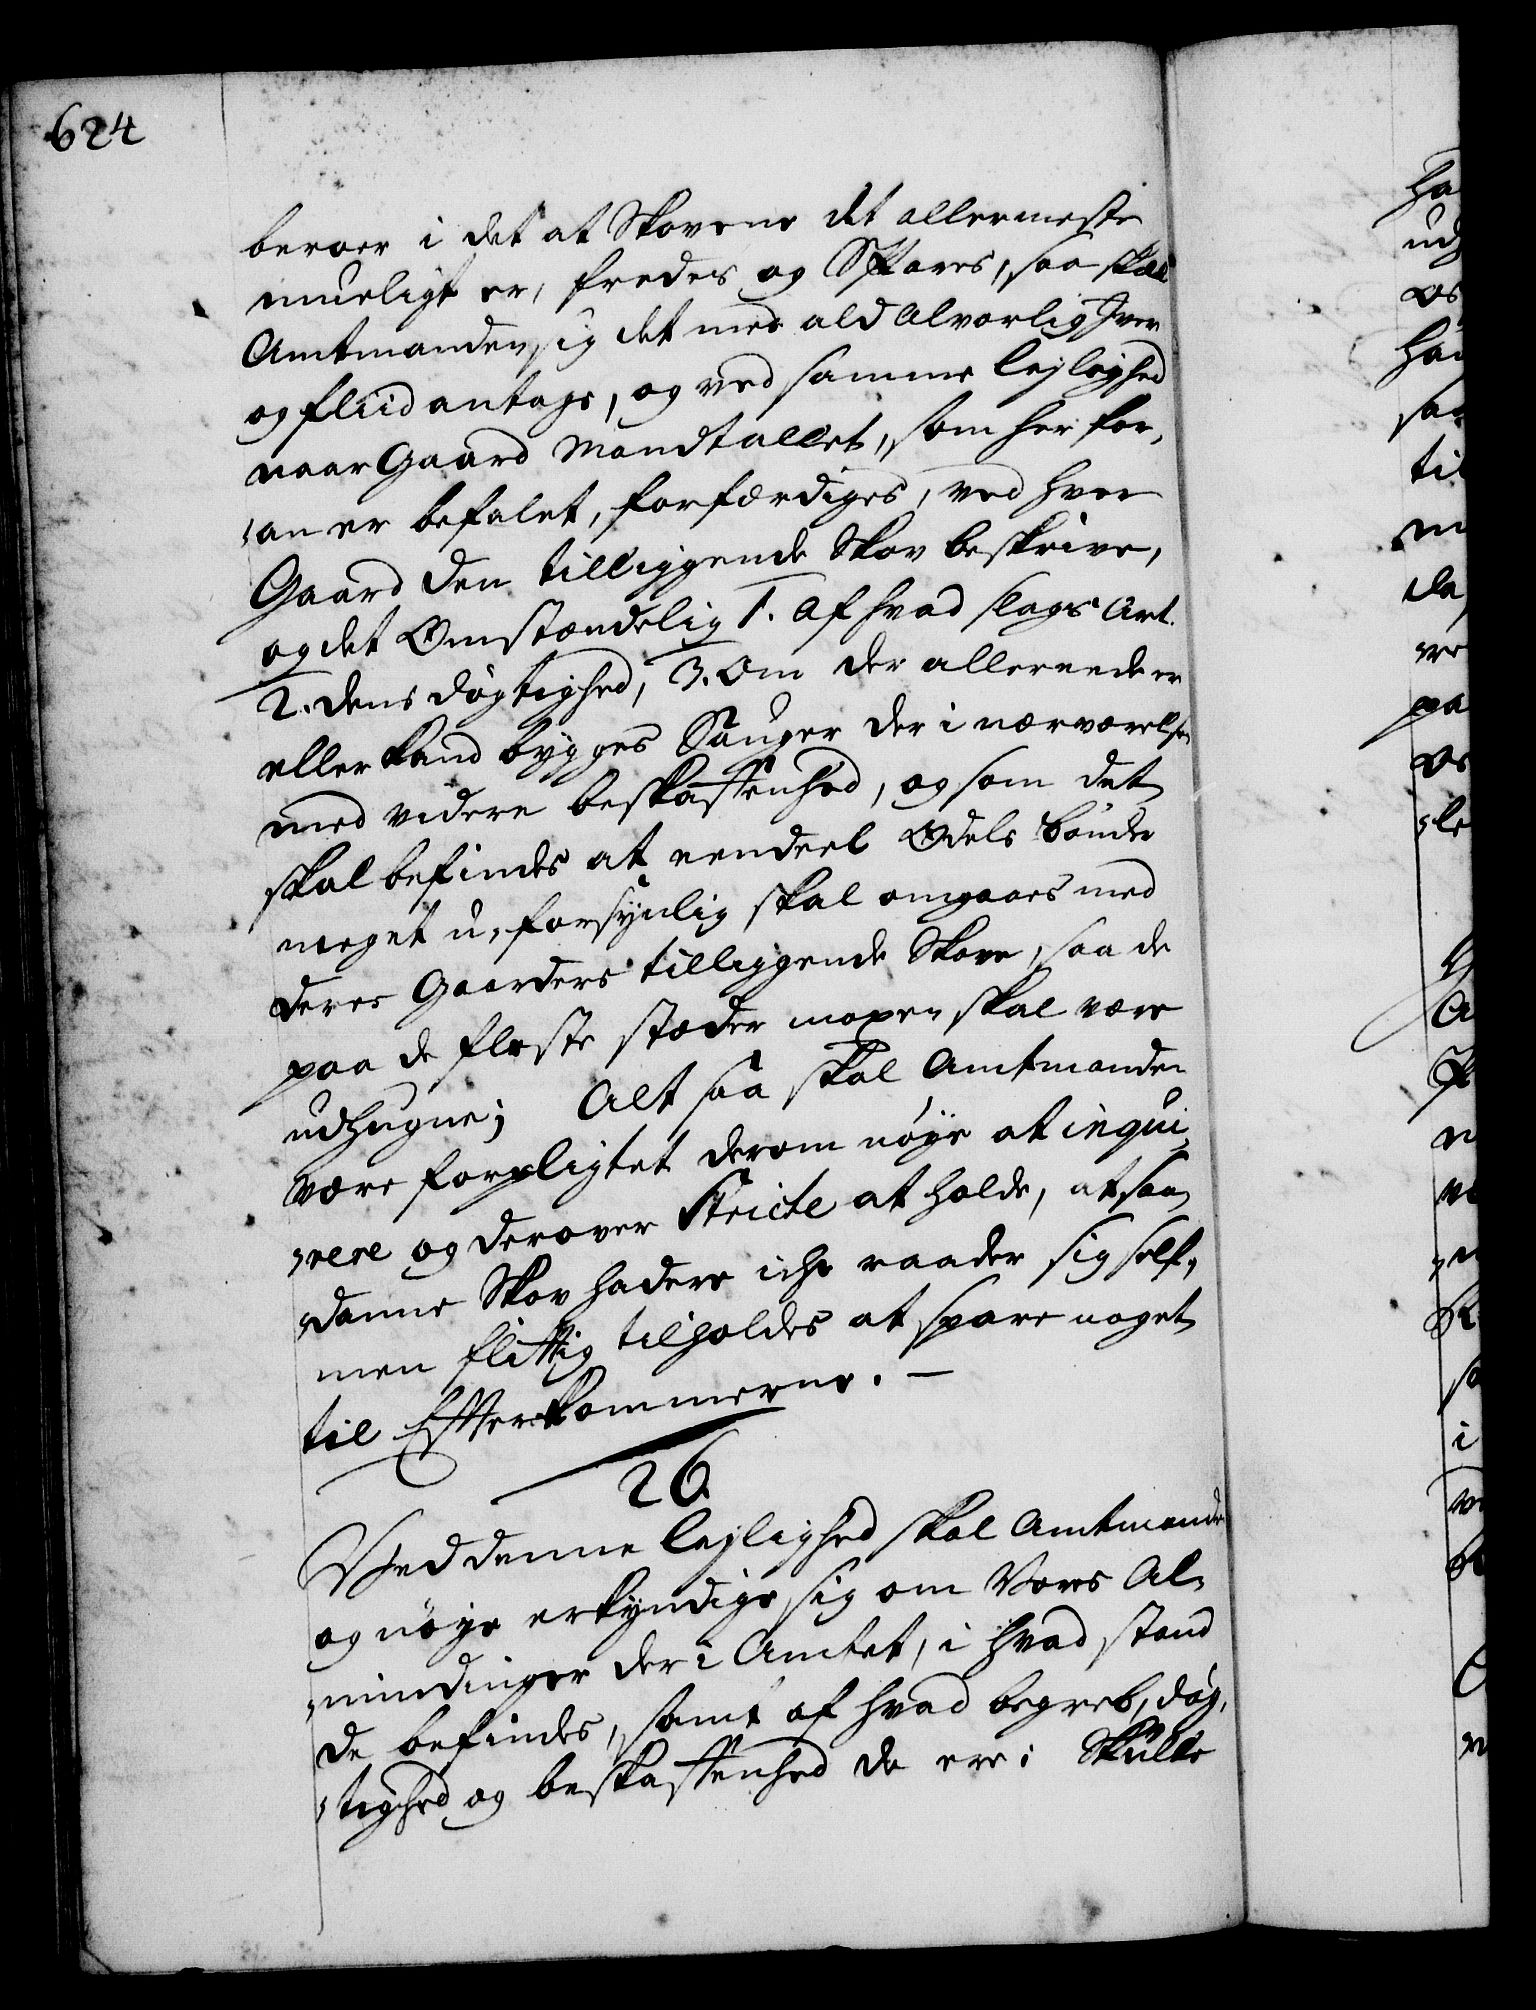 624
beroer i det at Skovene det allermeste
mueligt er, fredes og Spares, saa skal
Amtmanden sig det med ald Alvorlig Iver
og fliid antage, og ved samme lejlighed
naar Gaard Mandtallet, som her for,
,an er befalet, forfærdiges, ved hver
Gaard den tilliggende Skov beskrive,
og det Omstændelig 1. Af hvad slags Art.
2. dens døgtighed, 3. Om der allereede er
eller kand bygges Sauger der i nærværelsen
med videre beskaffenhed, og som det
skal befindes at eendeel Odels bønder
meget u,forsynlig skal omgaaes med
deres Gaarders tilliggende Skove, saa de
paa de fleste stæder maxen skal være
udhugne; Alt saa skal Amtmanden
være forpligtet derom nøye at inqui,
,rere og derover Stricte at holde, at saa,
,danne Skov hadere iche raader sig self,
men flittig tilholdes at spare noget
til Efterkommerne. —
26
Ved denne lejlighed skal Amtmanden
og nøye erkyndige sig om Vores Al,
,mindinger der i Amtet, i hvad stand
de befindes, samt af hvad begreb, døg,
,tighed og beskaffenhed de ere; Skulle